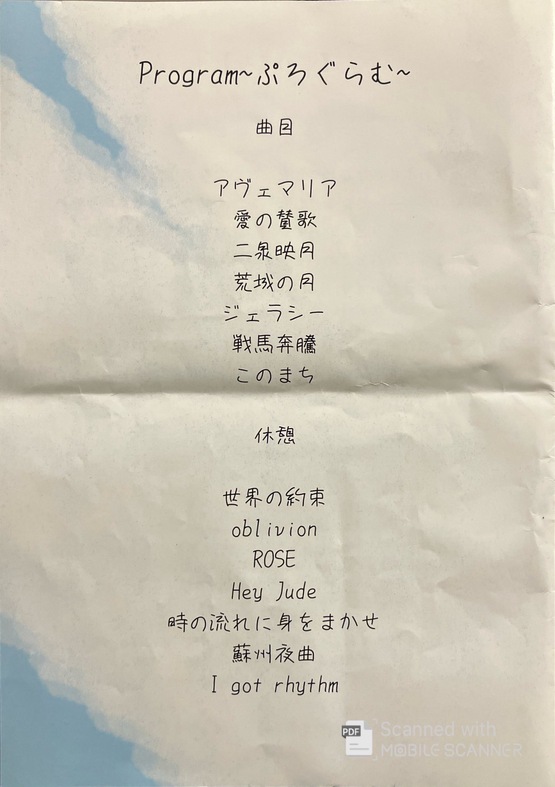 Program~ぷろぐらむ~
曲目
アヴェマリア
愛の賛歌
二泉映月
荒城の月
ジェラシー
戦馬奔騰
このまち
休憩
世界の約束
oblivion
ROSE
Hey Jude
時の流れに身をまかせ
蘇州夜曲
I got rhythm
PDF
Scanned with
MOBILE SCANNER